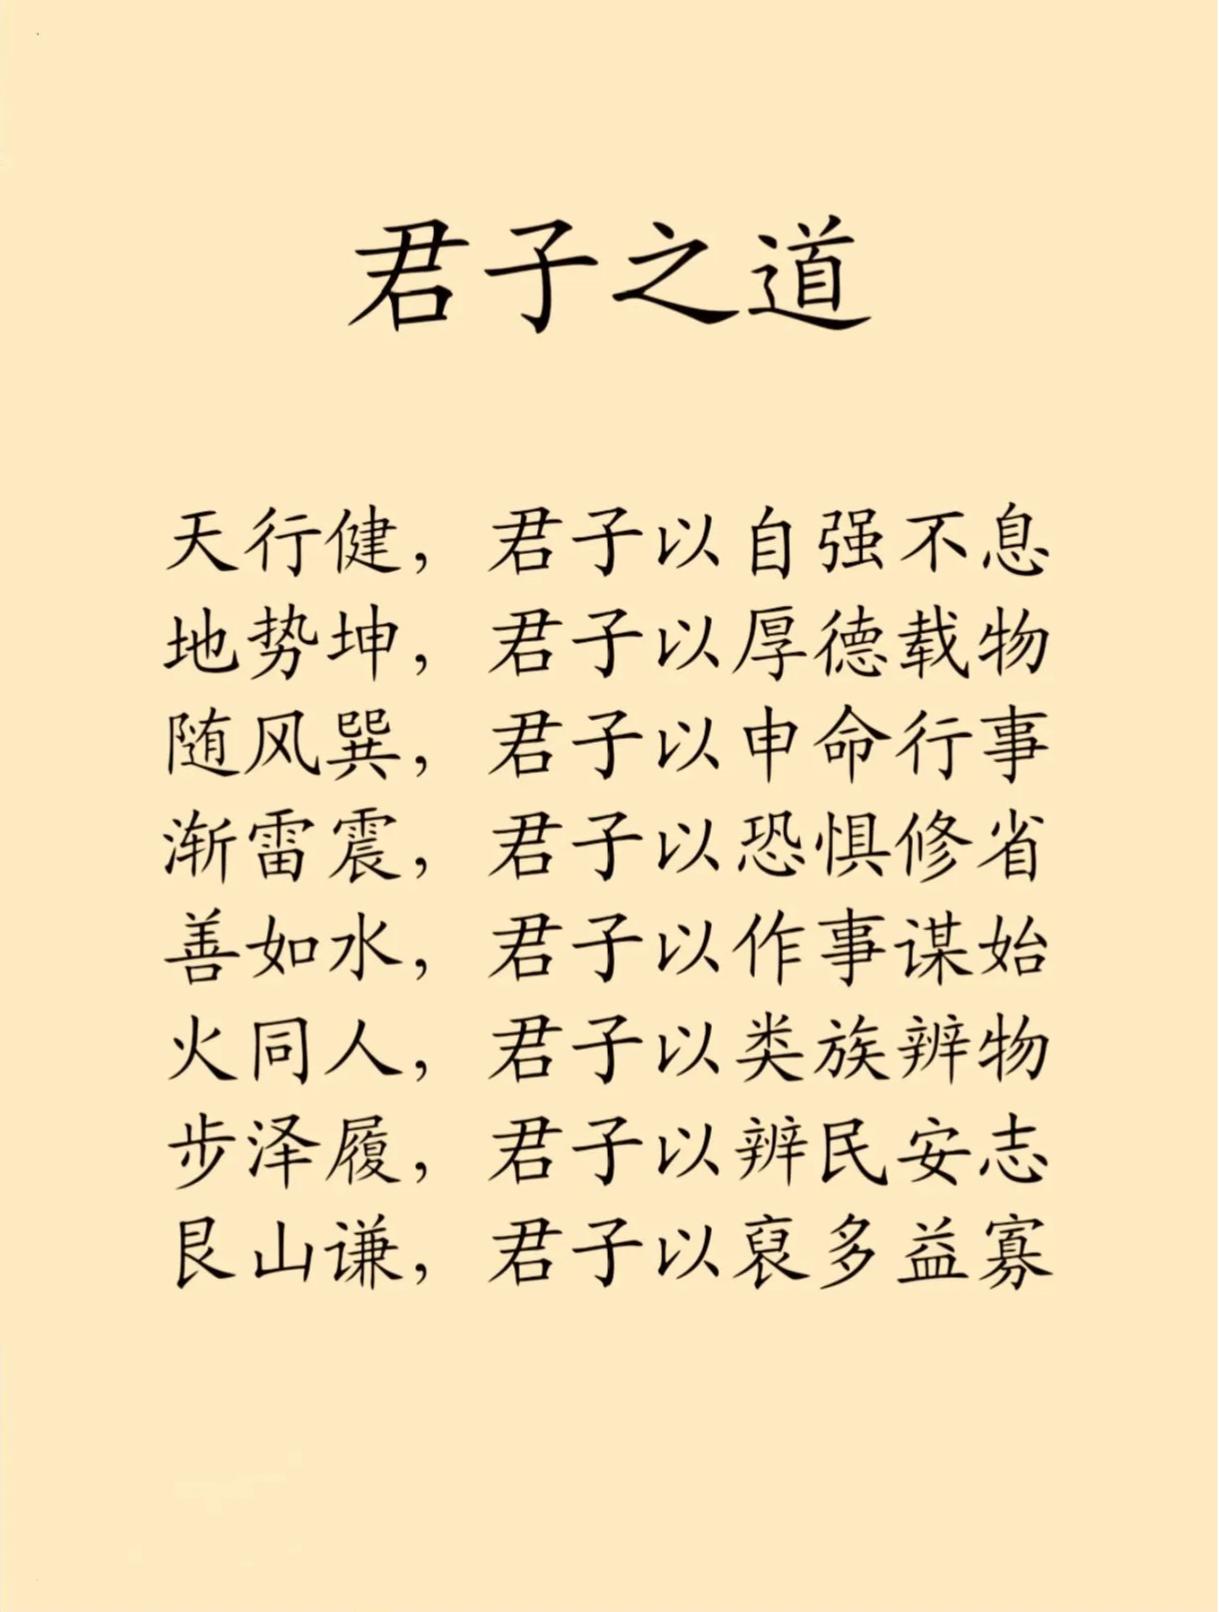 君子之道
天行健，君子以自强不息
地势坤，君子以厚德载物
随风巽，君子以申命行事
渐雷震，君子以恐惧修省
善如水，君子以作事谋始
火同人，君子以类族辨物
步泽履，君子以辨民安志
艮山谦，君子以裒多益寡